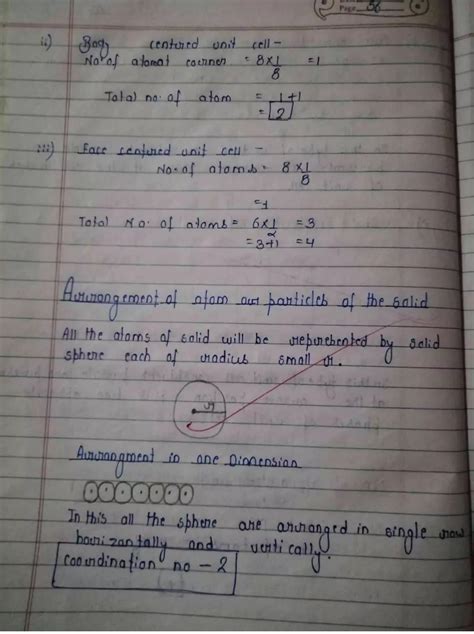 Page 56
ii) Body centered unit cell -
No. of atomat courner = 8×1/8 = 1
Total no. of atom = 1+1
= 2
iii) Face centured unit cell -
No. of atoms = 8×1/8
= 1
Total No. of atoms = 6×1/2 = 3
= 3+1 = 4
Arrangement of atom our particles of the solid
All the atoms of solid will be repurebented by solid
sphere each of radius small r.
r
Arrangment in one Dimnension
In this all the sphere are arranged in single row
horizantally and vertically.
coordination no - 2